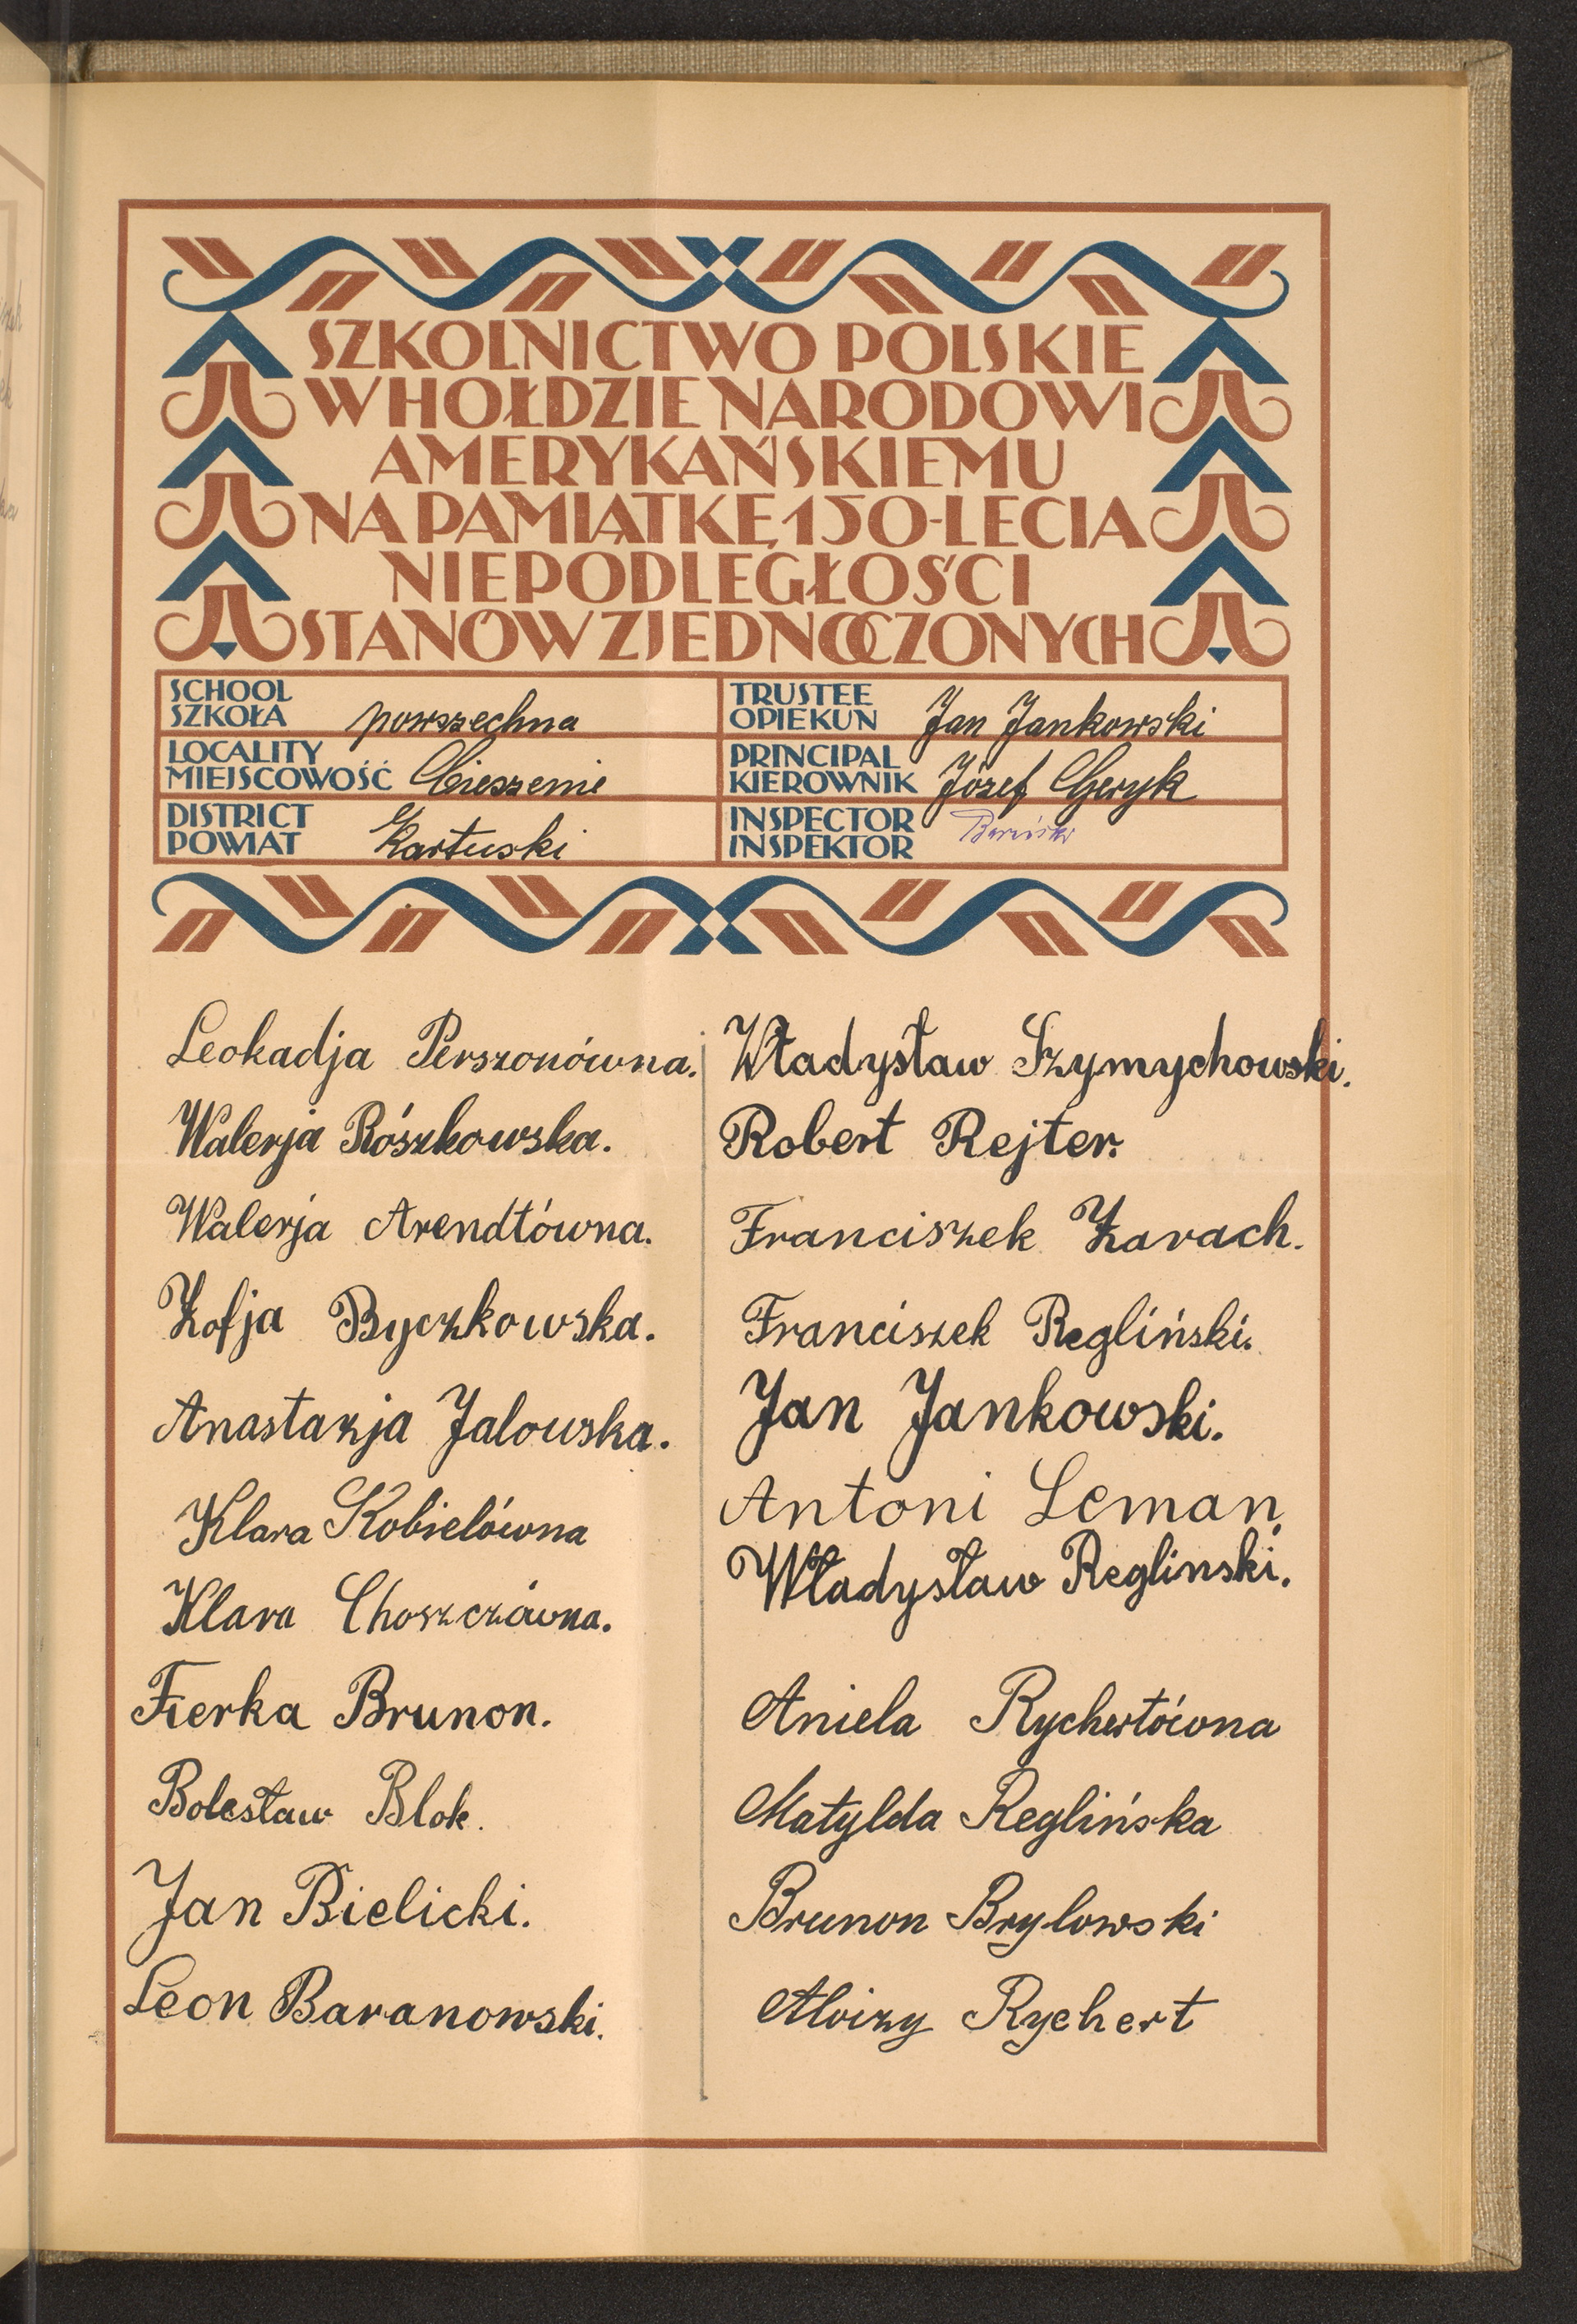 SZKOLNICTWO POLSKIE
W HOŁDZIE NARODOWI
AMERYKAŃSKIEMU
NA PAMIĄTKĘ 150-LECIA
NIEPODLEGŁOŚCI
STANÓW ZJEDNOCZONYCH
SCHOOL
SZKOŁA powszechna
TRUSTEE
OPIEKUN Jan Jankowski
LOCALITY
MIEJSCOWOŚĆ Cieszenie
PRINCIPAL
KIEROWNIK Józef Geryk
DISTRICT
POWIAT Kartuski
INSPECTOR
INSPEKTOR
Leokadja Perszonówna.
Walerja Rószkowska.
Walerja Arendtówna.
Zofja Byczkowska.
Anastazja Jalowska.
Klara Kobielówna
Klara Choszczówna.
Fierka Brunon.
Bolesław Blok.
Jan Bielicki.
Leon Baranowski.
Władysław Szymychowski.
Robert Rejter.
Franciszek Zarach.
Franciszek Regliński.
Jan Jankowski.
Antoni Leman.
Władysław Reglinski.
Aniela Rychertówna
Matylda Reglińska
Brunon Brylowski
Aloizy Rychert